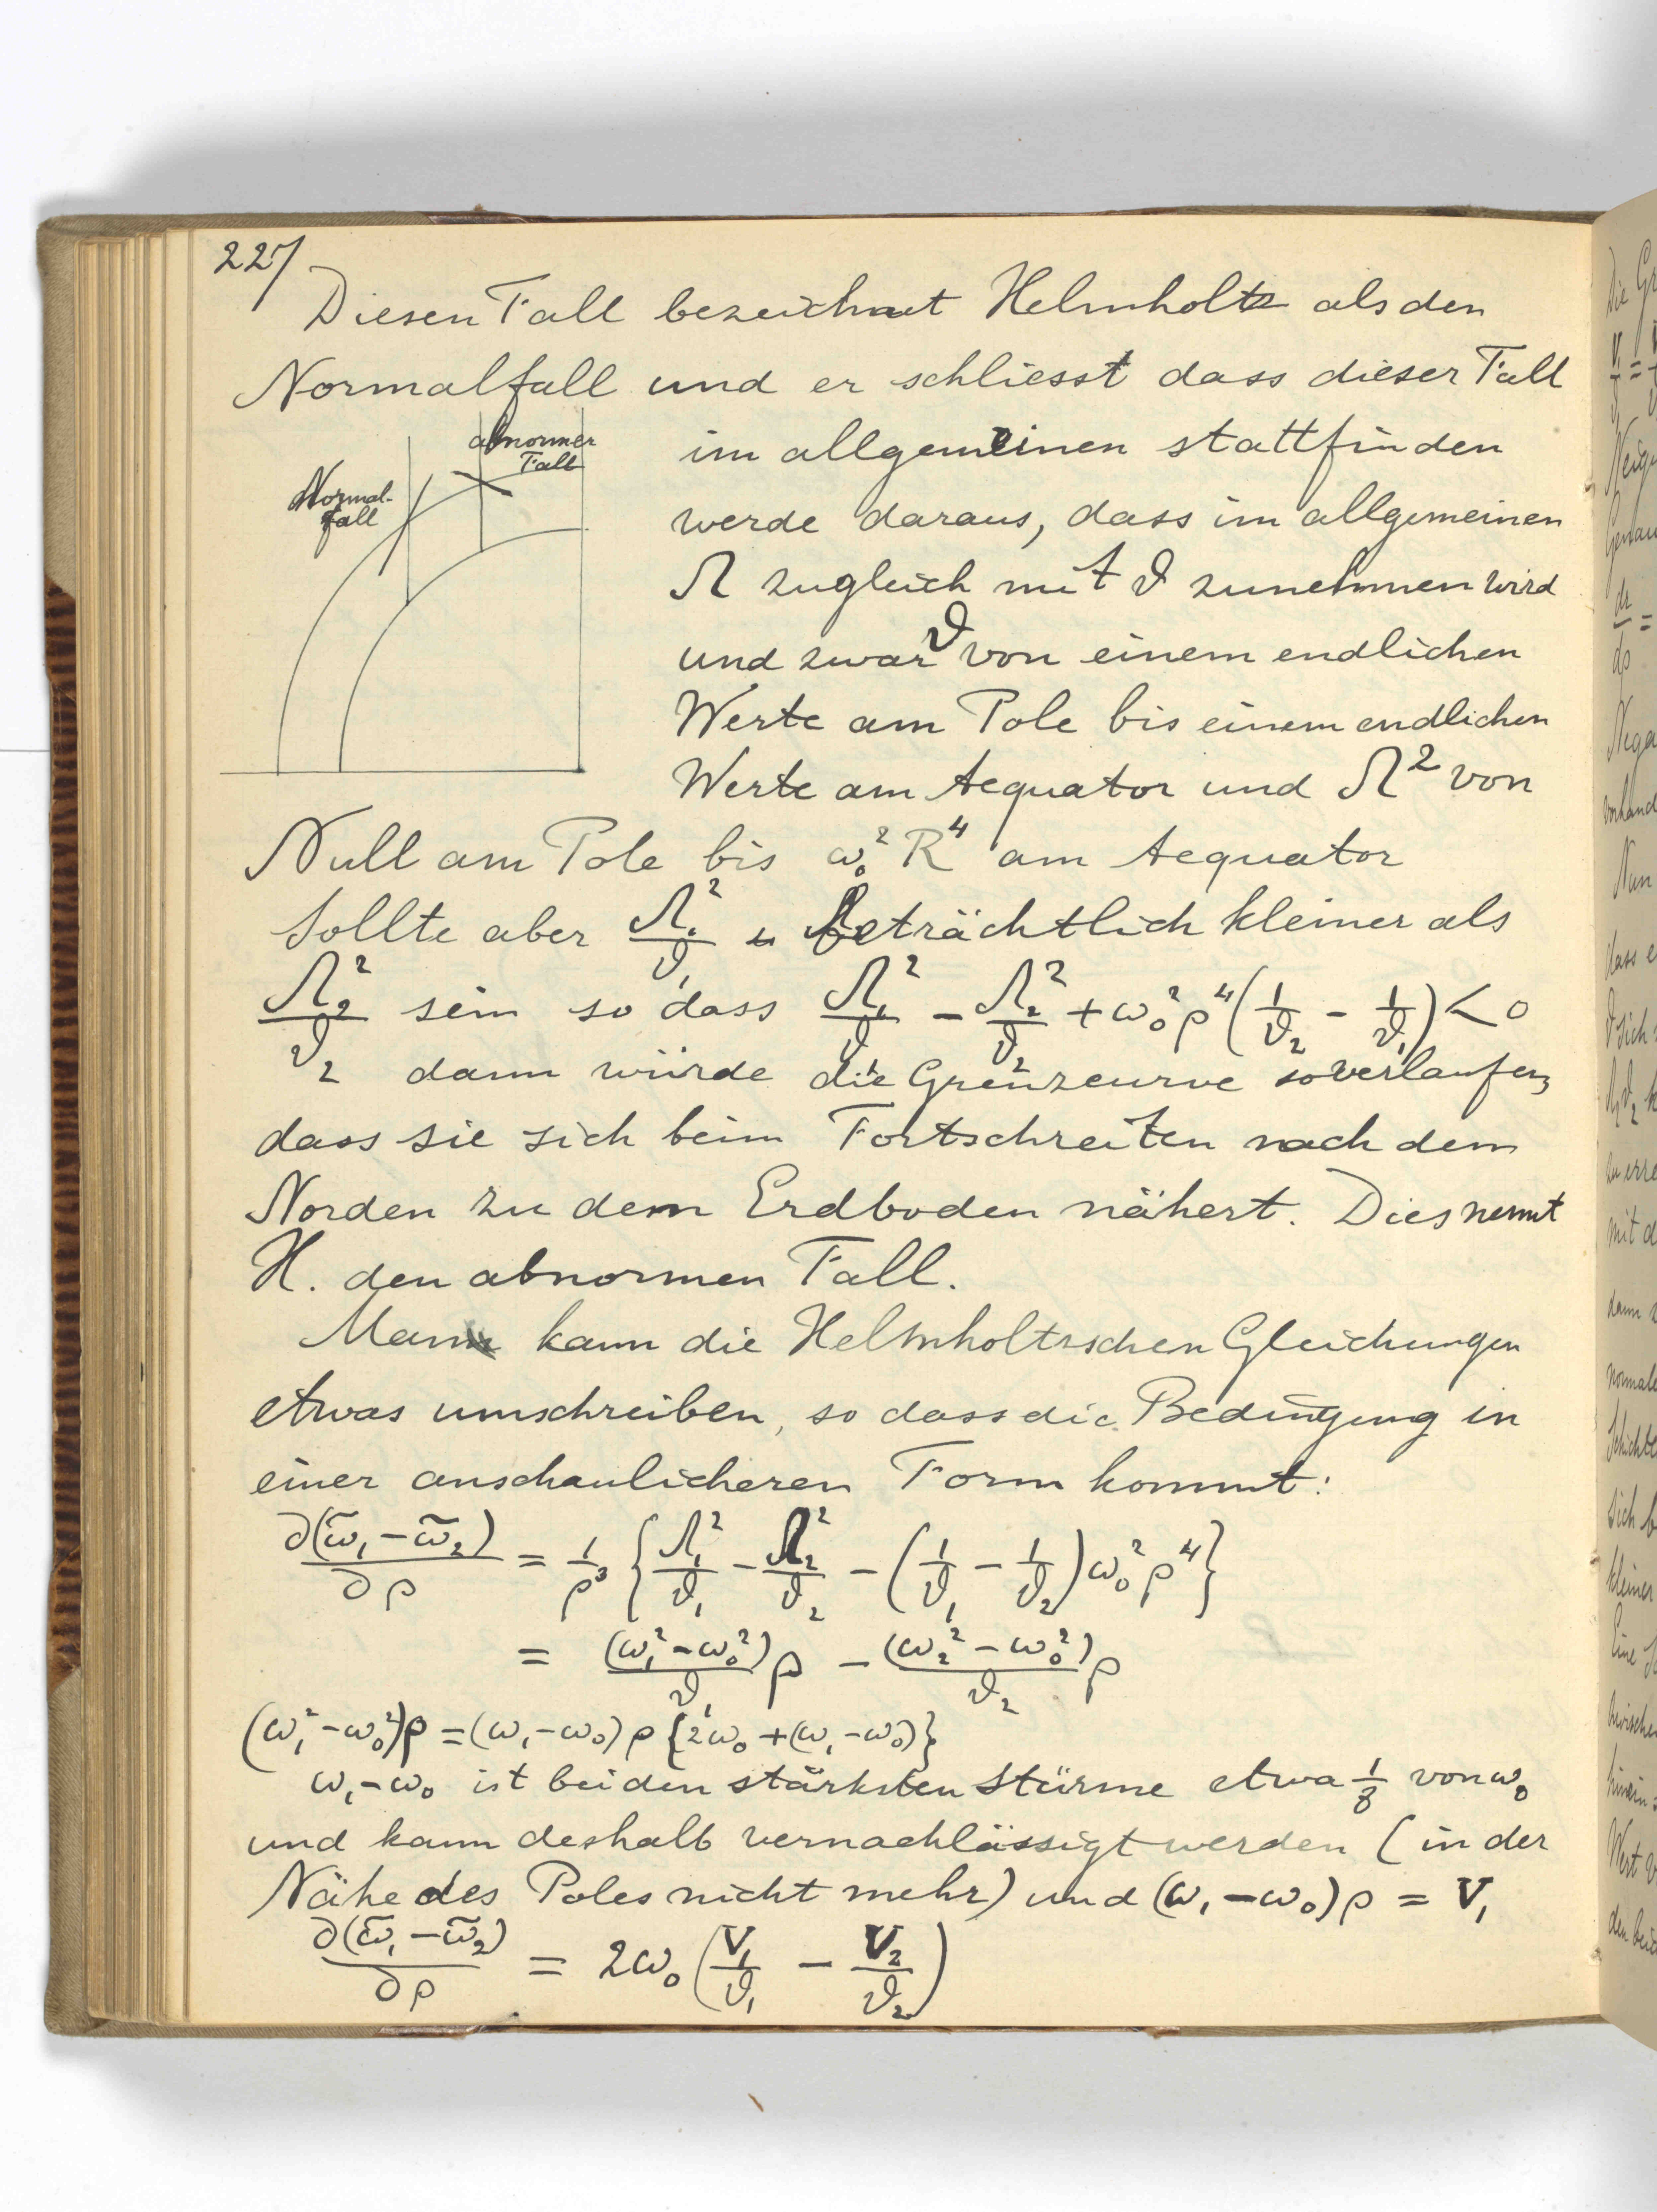 227
Diesen Fall bezeichnet Helmholtz als den
Normalfall und er schliesst dass dieser Fall
abnormer
Fall
Normal-
fall
im allgemeinen stattfinden
werde daraus, dass im allgemeinen
Ω zugleich mit ϑ zunehmen wird
und zwar ϑ von einem endlichen
Werte am Pole bis einem endlichen
Werte am Aequator und Ω² von
Null am Pole bis ω₀² R⁴ am Aequator
Sollte aber Ω₁²/ϑ₁ beträchtlich kleiner als
Ω₂²/ϑ₂ sein so dass Ω₁²/ϑ₁ - Ω₂²/ϑ₂ + ω₀²ρ⁴(1/ϑ₂ - 1/ϑ₁) < 0
dann würde die Grenzcurve so verlaufen,
dass sie sich beim Fortschreiten nach dem
Norden zu dem Erdboden nähert. Dies nennt
H. den abnormen Fall.
Man kann die Helmholtzschen Gleichungen
etwas umschreiben, so dass die Bedingung in
einer anschaulicheren Form kommt:
∂(ω̃₁ - ω̃₂)/∂ρ = 1/ρ³ {Ω₁²/ϑ₁ - Ω₂²/ϑ₂ - (1/ϑ₁ - 1/ϑ₂)ω₀²ρ⁴}
= (ω₁² - ω₀²)/ϑ₁ ρ - (ω₂² - ω₀²)/ϑ₂ ρ
(ω₁² - ω₀²)ρ = (ω₁ - ω₀)ρ {2ω₀ + (ω₁ - ω₀)}
ω₁ - ω₀ ist bei den stärksten Stürme etwa 1/8 von ω₀
und kann deshalb vernachlässigt werden (in der
Nähe des Poles nicht mehr) und (ω₁ - ω₀)ρ = V₁
∂(ω̃₁ - ω̃₂)/∂ρ = 2ω₀(V₁/ϑ₁ - V₂/ϑ₂)